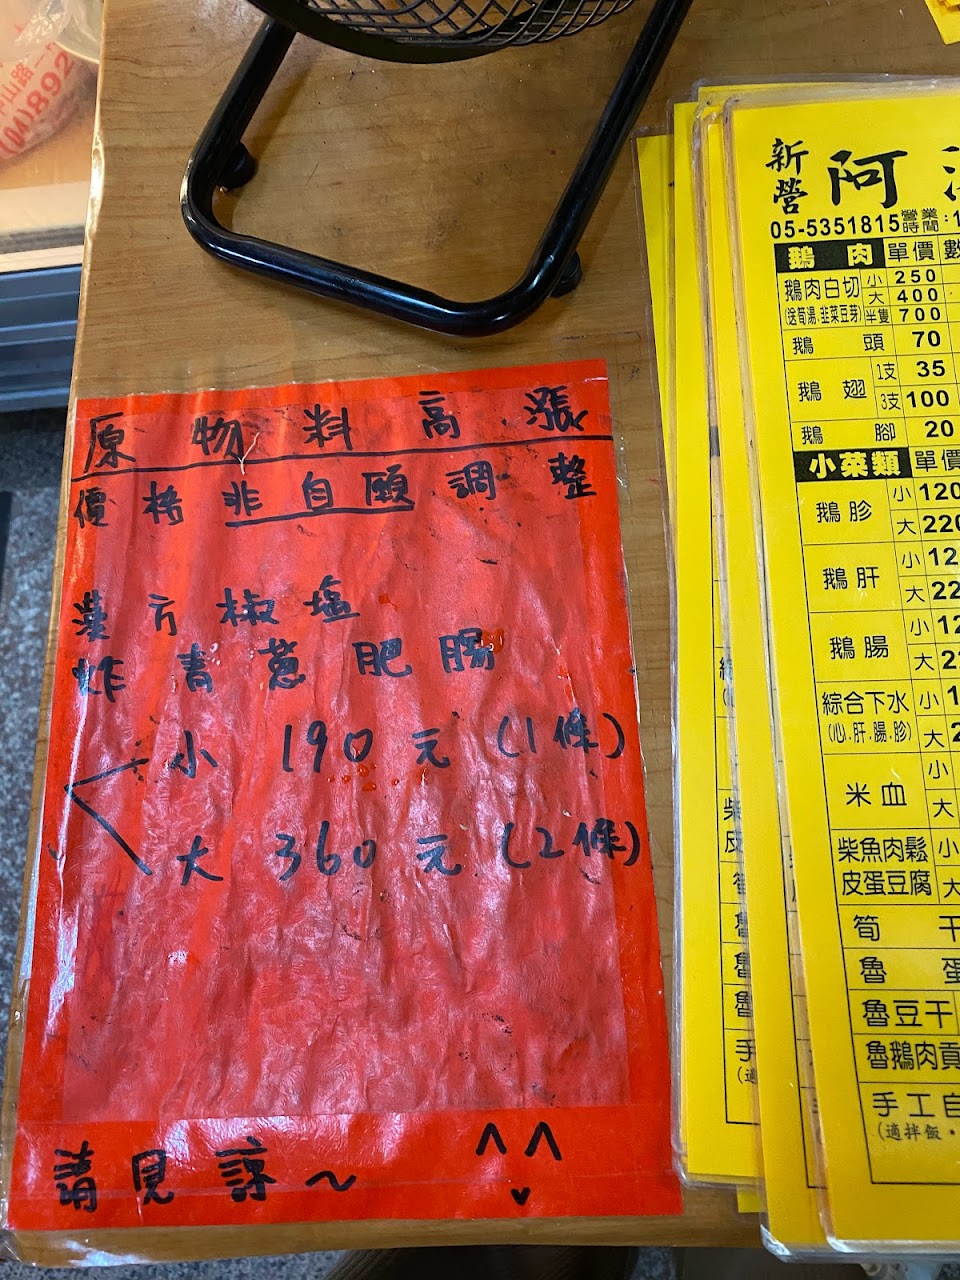 (04)892
原物料高漲
價格非自願調整
漢方椒塩
炸青蔥肥腸
小 190元(1條)
大 360元(2條)
請見諒~ ^^
新營 阿
05-5351815 營業時間:1
鵝肉 單價 數
鵝肉白切 小 250
大 400
(送筍湯.韭菜豆芽) 半隻 700
鵝頭 70
鵝翅 1支 35
3支 100
鵝腳 20
小菜類 單價
鵝胗 小 120
大 220
鵝肝 小 12
大 22
鵝腸 小 12
大 2
綜合下水 小 1
(心.肝.腸.胗) 大 2
米血 小
大
柴魚肉鬆 小
皮蛋豆腐 大
筍干
魯蛋
魯豆干
魯鵝肉貢
手工自
(適拌飯.